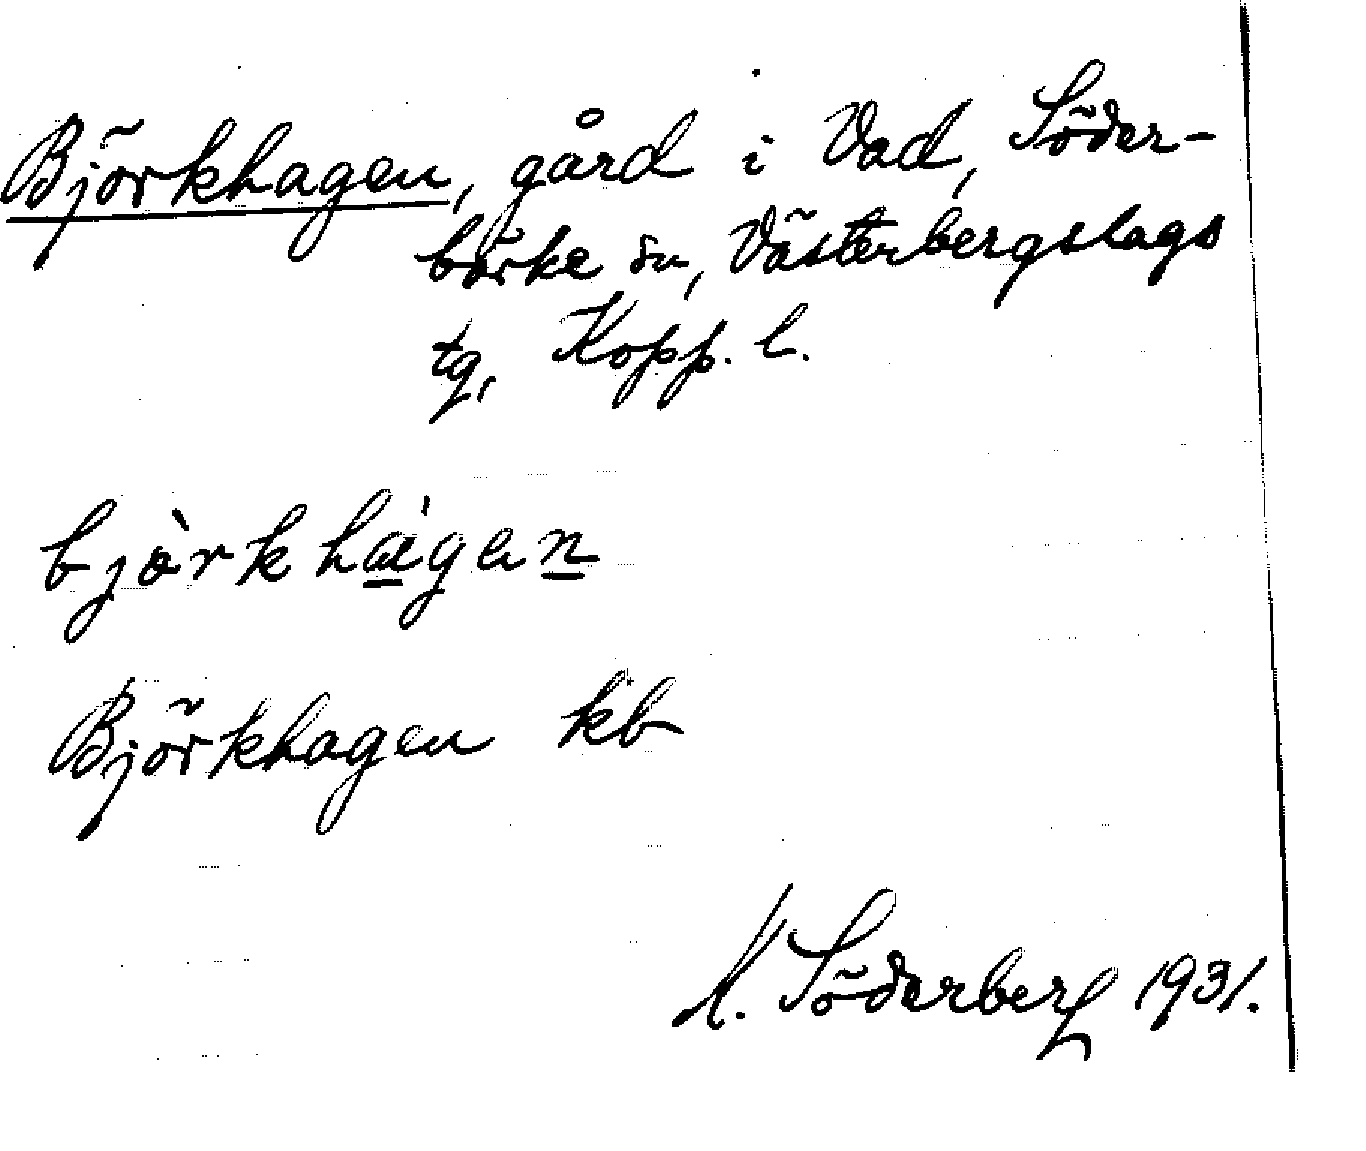 Björkhagen, gård i Vad, Söder-
bärke sn, Västerbergslags
tg, Kopp. l.
bjòrkhágen
Björkhagen kb
A. Söderberg 1931.